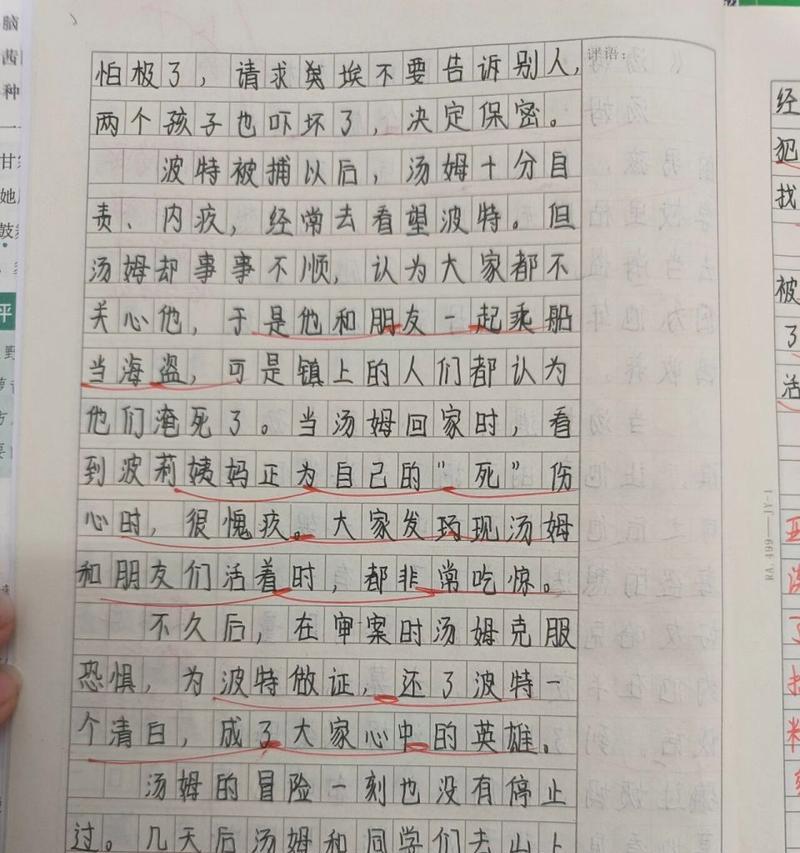 怕极了，请求哈埃不要告诉别人，
两个孩子也吓坏了，决定保密。
波特被捕以后，汤姆十分自
责、内疚，经常去看望波特。但
汤姆却事事不顺，认为大家都不
关心他，于是他和朋友一起乘船
当海盗，可是镇上的人们都认为
他们淹死了。当汤姆回家时，看
到波莉姨妈正为自己的"死"伤
心时，很愧疚。大家发现汤姆
和朋友们活着时，都非常吃惊。
不久后，在审案时汤姆克服
恐惧，为波特做证，还了波特一
个清白，成了大家心中的英雄。
汤姆的冒险一刻也没有停止
过。几天后汤姆和同学们去山上
评语：
RA.499—JY-1
经
犯
找
被
了
活